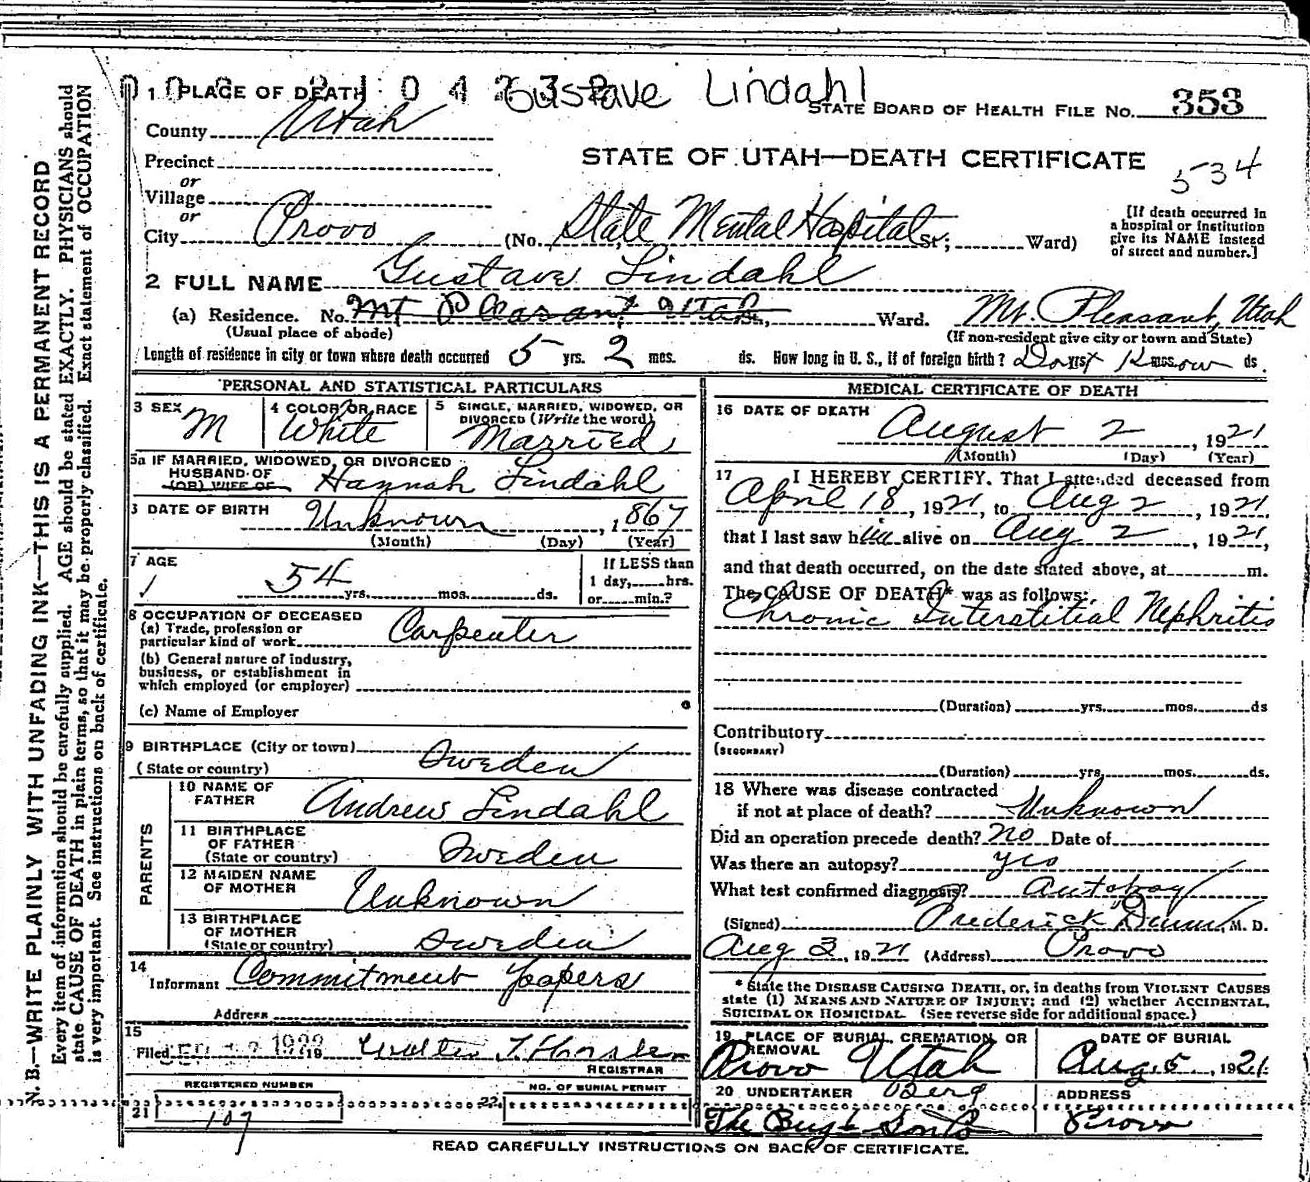 Gustave Lindahl
1 PLACE OF DEATH
STATE BOARD OF HEALTH FILE NO. 353
County Utah
STATE OF UTAH—DEATH CERTIFICATE
534
Precinct
or
Village
or
City Provo (No. State Mental Hospital St; Ward)
[If death occurred in
a hospital or institution
give its NAME instead
of street and number.]
2 FULL NAME Gustave Lindahl
(a) Residence. No. Mt Pleasant, Utah St., Ward. Mt. Pleasant, Utah
(Usual place of abode) (If non-resident give city or town and State)
Length of residence in city or town where death occurred 5 yrs. 2 mos. ds. How long in U. S., if of foreign birth? Don't Know yrs. mos. ds.
PERSONAL AND STATISTICAL PARTICULARS
3 SEX M
4 COLOR OR RACE White
5 SINGLE, MARRIED, WIDOWED, OR
DIVORCED (Write the word)
Married
5a IF MARRIED, WIDOWED, OR DIVORCED
HUSBAND OF
(OR) WIFE OF Hannah Lindahl
DATE OF BIRTH Unknown, 1867
(Month) (Day) (Year)
7 AGE
54 yrs. mos. ds.
If LESS than
1 day, hrs.
or min.?
8 OCCUPATION OF DECEASED
(a) Trade, profession or
particular kind of work Carpenter
(b) General nature of industry,
business, or establishment in
which employed (or employer)
(c) Name of Employer
9 BIRTHPLACE (City or town)
(State or country) Sweden
PARENTS
10 NAME OF
FATHER Andrew Lindahl
11 BIRTHPLACE
OF FATHER
(State or country) Sweden
12 MAIDEN NAME
OF MOTHER Unknown
13 BIRTHPLACE
OF MOTHER
(State or country) Sweden
14
Informant Commitment Papers
Address
15
Filed 1922 Walter T. Hasler
REGISTRAR
REGISTERED NUMBER
21 107
NO. OF BURIAL PERMIT
22
MEDICAL CERTIFICATE OF DEATH
16 DATE OF DEATH
August 2, 1921
(Month) (Day) (Year)
17 I HEREBY CERTIFY. That I attended deceased from
April 18, 1921, to Aug 2, 1921,
that I last saw him alive on Aug 2, 1921,
and that death occurred, on the date stated above, at m.
The CAUSE OF DEATH* was as follows:
Chronic Interstitial Nephritis
(Duration) yrs. mos. ds
Contributory
(SECONDARY)
(Duration) yrs. mos. ds.
18 Where was disease contracted
if not at place of death? Unknown
Did an operation precede death? no Date of
Was there an autopsy? yes
What test confirmed diagnosis? Autopsy
(Signed) Frederick Dunn, M. D.
Aug 3, 1921 (Address) Provo
* State the DISEASE CAUSING DEATH, or, in deaths from VIOLENT CAUSES
state (1) MEANS AND NATURE OF INJURY; and (2) whether ACCIDENTAL,
SUICIDAL OR HOMICIDAL. (See reverse side for additional space.)
19 PLACE OF BURIAL, CREMATION, OR
REMOVAL
Provo Utah
DATE OF BURIAL
Aug. 5, 1921.
20 UNDERTAKER Berg
The Berg & Sons Co
ADDRESS
Provo
READ CAREFULLY INSTRUCTIONS ON BACK OF CERTIFICATE.
N. B.—WRITE PLAINLY WITH UNFADING INK—THIS IS A PERMANENT RECORD
Every item of information should be carefully supplied. AGE should be stated EXACTLY. PHYSICIANS should
state CAUSE OF DEATH in plain terms, so that it may be properly classified. Exact statement of OCCUPATION
is very important. See instructions on back of certificate.